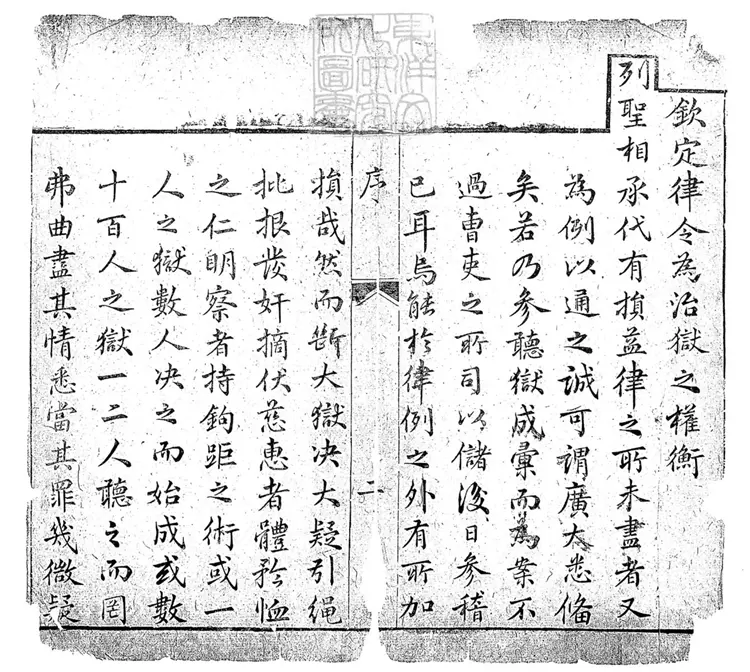 欽定律令為治獄之權衡
列聖相承代有損益律之所未盡者又
為例以通之誠可謂廣大悉俻
矣若乃參聽獄成彙而為案不
過曹吏之所司以儲後日參稽
已耳烏能於律例之外有所加
序
二
損哉然而斷大獄决大疑引繩
批根發奸摘伏慈惠者體矜恤
之仁明察者持鉤距之術或一
人之獄數人决之而始成或數
十百人之獄一二人聽之而罔
弗曲盡其情悉當其罪幾微疑